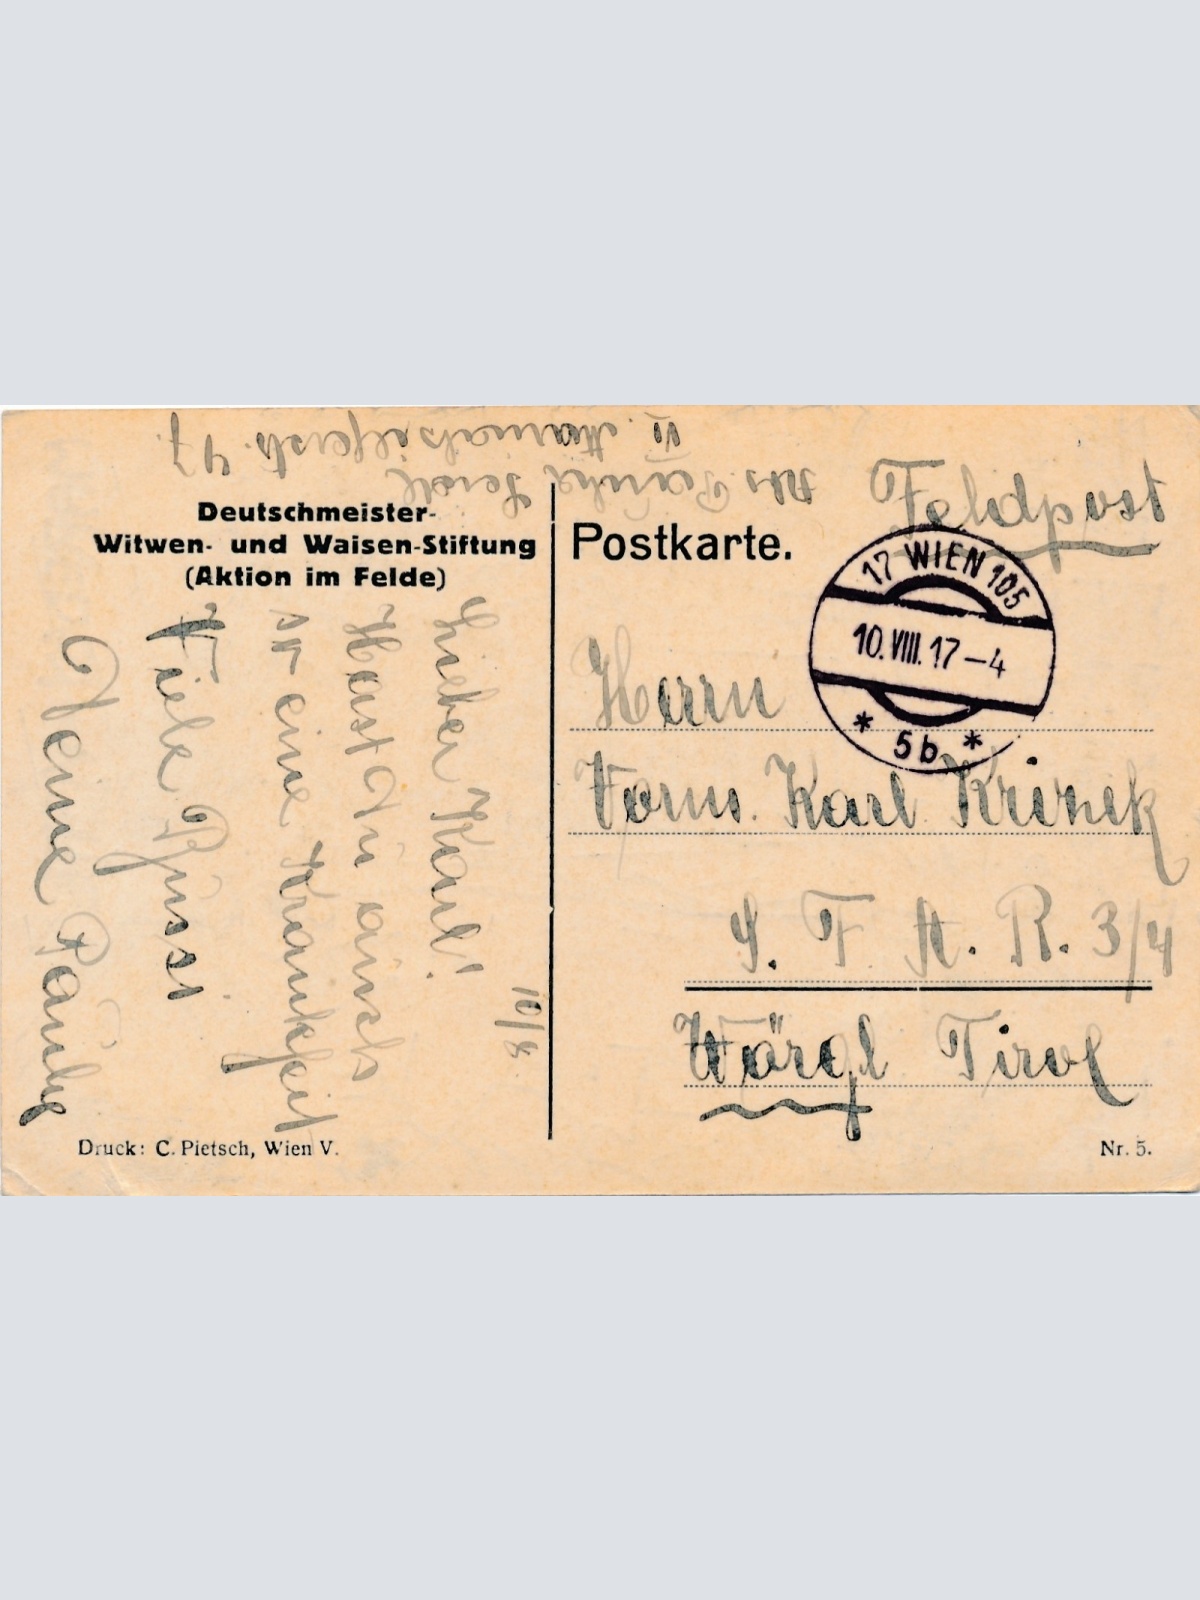 Abs. Paula Seidl
VI. Mariahilferstr. 47.
Feldpost
Deutschmeister-
Witwen- und Waisen-Stiftung
(Aktion im Felde)
Postkarte.
17 WIEN 105
10. VIII. 17 – 4
* 5b *
10/8.
Lieber Karl!
Hast Du auch
so eine Krankheit
Viele Grüsse
Deine Paula
Herrn
Karl
S. F. A. R. 3/4
Wörgl Tirol
Druck: C. Pietsch, Wien V.
Nr. 5.